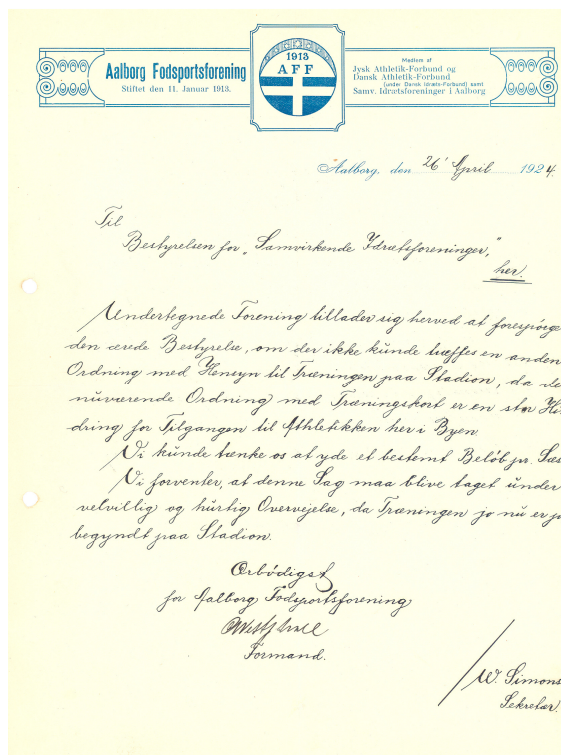 Aalborg Fodsportsforening
Stiftet den 11. Januar 1913.
1913
AFF
Medlem af
Jysk Athletik-Forbund og
Dansk Athletik-Forbund
(under Dansk Idræts-Forbund) samt
Samv. Idrætsforeninger i Aalborg
Aalborg, den 26' April 1924.
Til
Bestyrelsen for „Samvirkende Idrætsforeninger,"
her.
Undertegnede Forening tillader sig herved at forespörge
den ærede Bestyrelse, om der ikke kunde træffes en anden
Ordning med Hensyn til Træningen paa Stadion, da de
nuværende Ordning med Træningskort er en stor Hi
dring for Tilgangen til Athletikken her i Byen.
Vi kunde tænke os at yde et bestemt Belöb pr. Sæs
Vi forventer, at denne Sag maa blive taget under
velvillig og hurtig Overvejelse, da Træningen jo nu er
begyndt paa Stadion.
Ærbödigst
for Aalborg Fodsportsforening
Formand.
W. Simons
Sekretær.